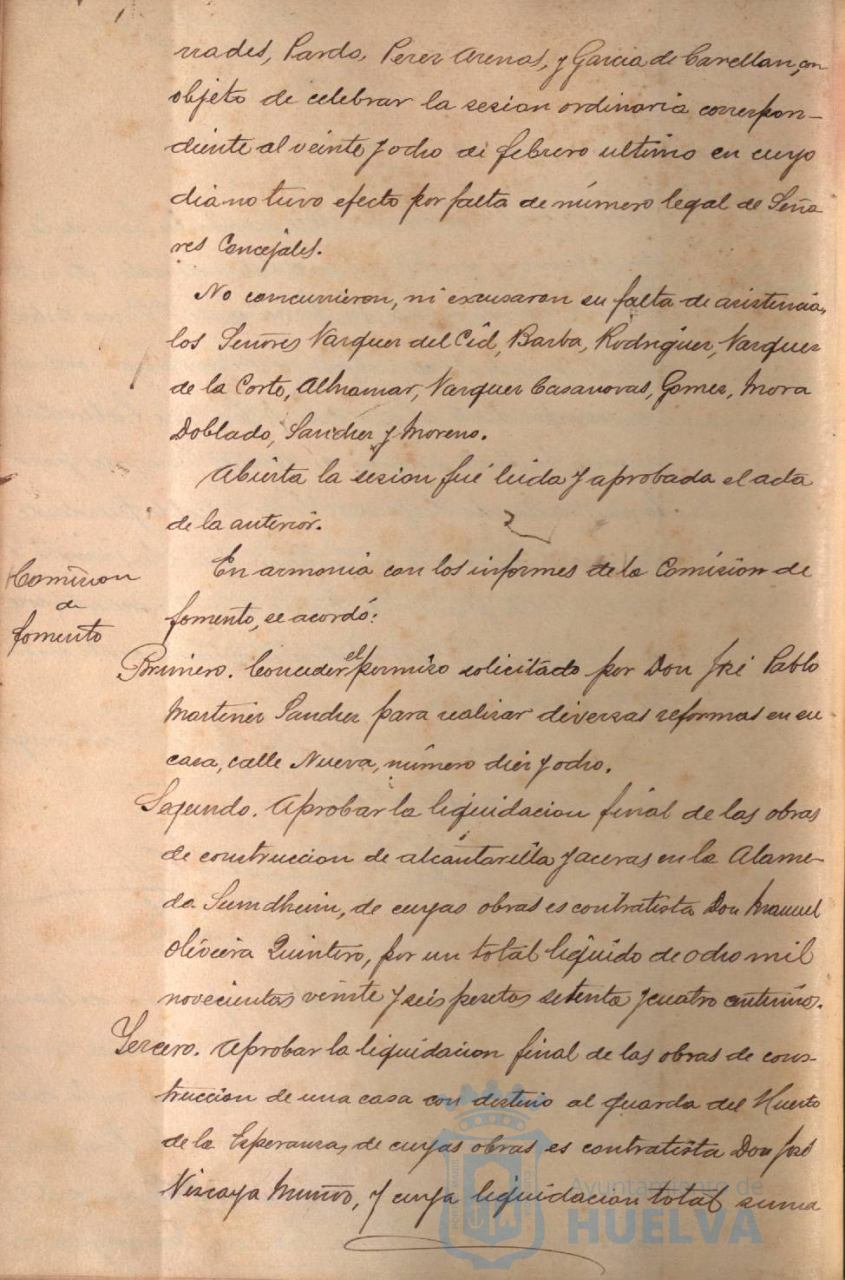 rrades, Pardo, Perez Arenas, y Garcia de Carellan, con
objeto de celebrar la sesion ordinaria correspon-
diente al veinte y ocho de febrero ultimo en cuyo
dia no tuvo efecto por falta de número legal de Seño
res Concejales.
No concurrieron, ni excusaron su falta de asistencia,
los Señores Vazquez del Cid, Barba, Rodriguez, Vazquez
de la Corte, Alhamar, Vazquez Casanovas, Gomez, Mora
Doblado, Sanchez y Moreno.
Abierta la sesion fué leida y aprobada el acta
de la anterior.
Comision
de
fomento
En armonia con los informes de la Comision de
fomento, se acordó:
Primero. Conceder el permiso solicitado por Don José Pablo
Martinez Sanchez para realizar diversas reformas en su
casa, calle Nueva, número diez y ocho.
Segundo. Aprobar la liquidacion final de las obras
de construccion de alcantarilla y aceras en la Alame-
da Sundheim, de cuyas obras es contratista Don Manuel
Oliveira Quintero, por un total liquido de ocho mil
novecientas veinte y seis pesetas setenta y cuatro centimos.
Tercero. Aprobar la liquidacion final de las obras de cons-
truccion de una casa con destino al guarda del Huerto
de la Esperanza, de cuyas obras es contratista Don José
Vizcaya Muñoz, y cuya liquidacion total suma
Ayuntamiento de
HUELVA